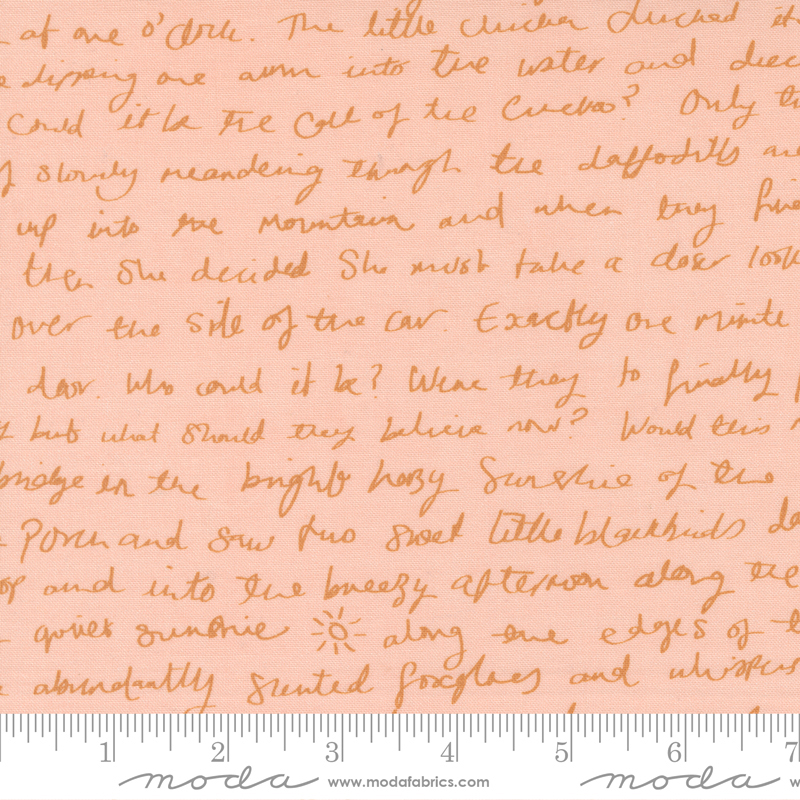 at one o'clock. The little chicken clucked
dipping one arm into the water and
Could it be the Call of the Cuckoo? Only
slowly meandering through the daffodills are
up into the mountain and when they
then She decided She must take a closer look
over the side of the car. Exactly one minute
door. Who could it be? Were they to finally
but what should they believe now? Would this
bridge in the bright hazy Sunshine of the
Porch and saw two sweet little blackbirds
and into the breezy afternoon along the
quiet sunshine along the edges of
abundantly scented foxgloves and
1 2 3 4 5 6 7
moda www.modafabrics.com moda w